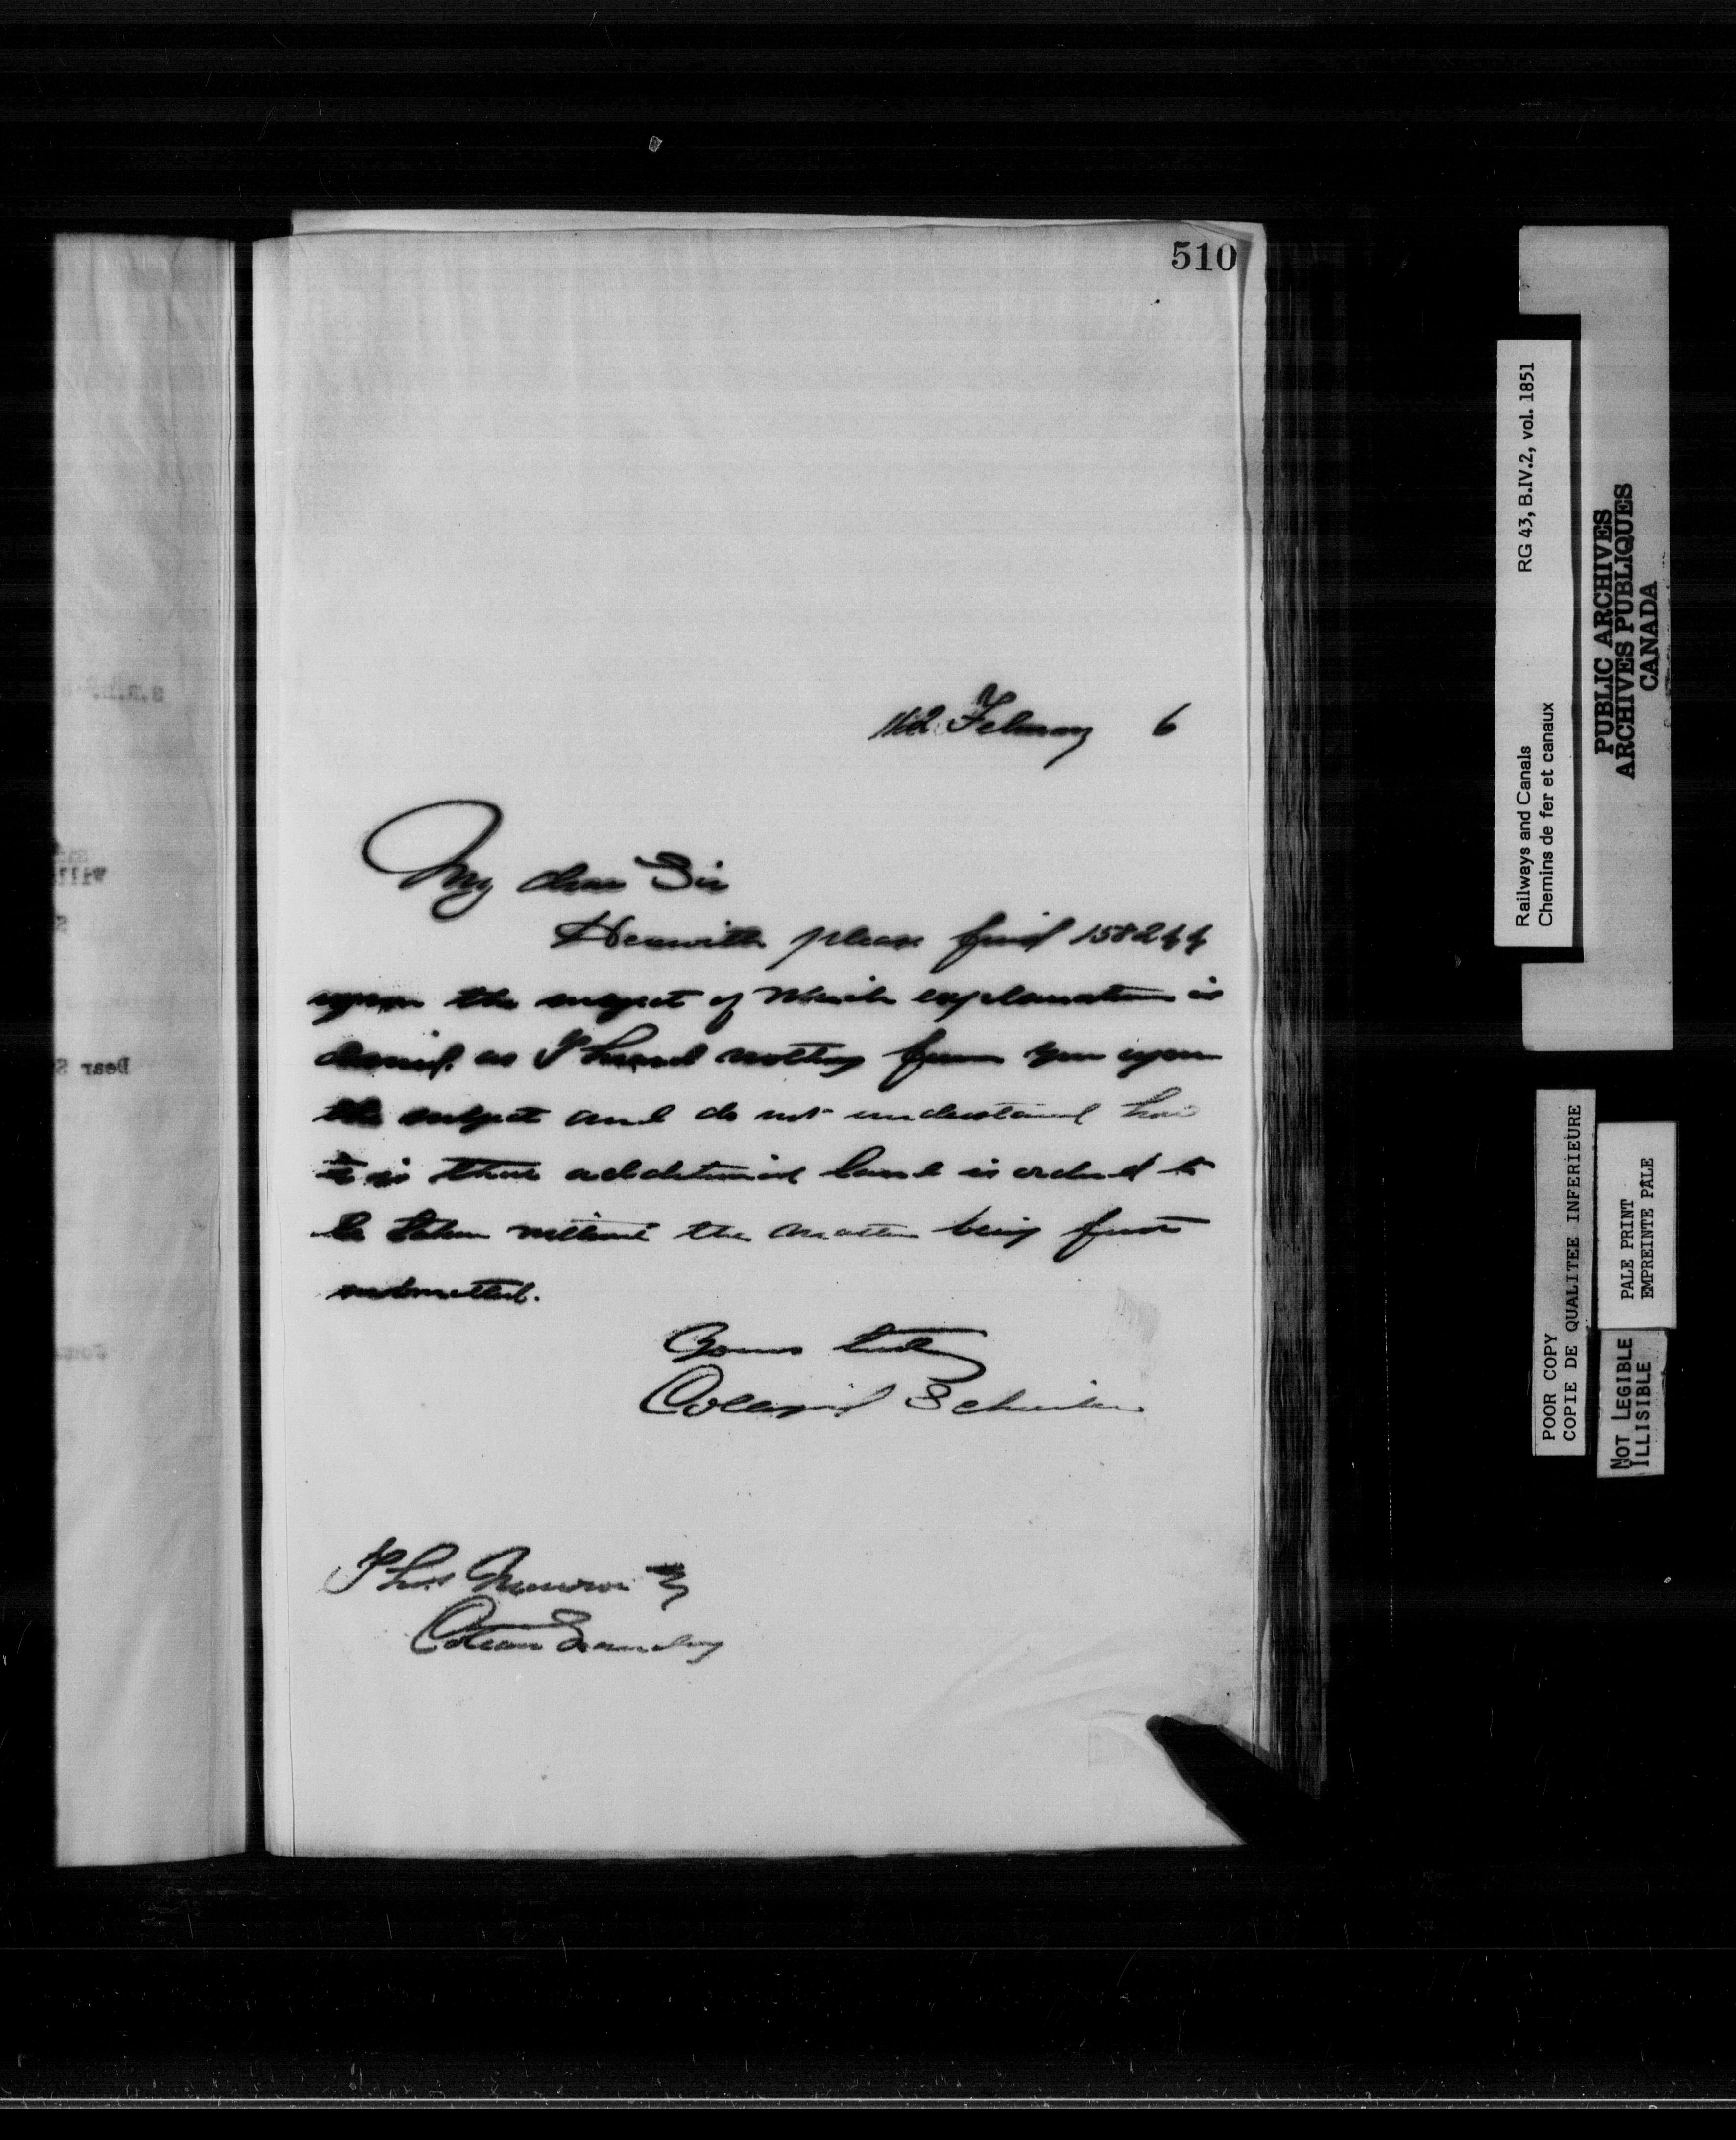 510
February 6
My dear Sir
Herewith please find 1582
upon the subject of which explanation is
desired, as I heard nothing from you upon
the subject and do not understand how
it is that additional land is ordered to
be taken without the matter being first
submitted.
Yours truly
Collingwood Schreiber
Thos Munro Esq
Coteau Landing
Dear S
Railways and Canals RG 43, B.IV.2, vol. 1851
Chemins de fer et canaux
PUBLIC ARCHIVES
ARCHIVES PUBLIQUES
CANADA
POOR COPY
COPIE DE QUALITEE INFERIEURE
PALE PRINT
EMPREINTE PALE
NOT LEGIBLE
ILLISIBLE